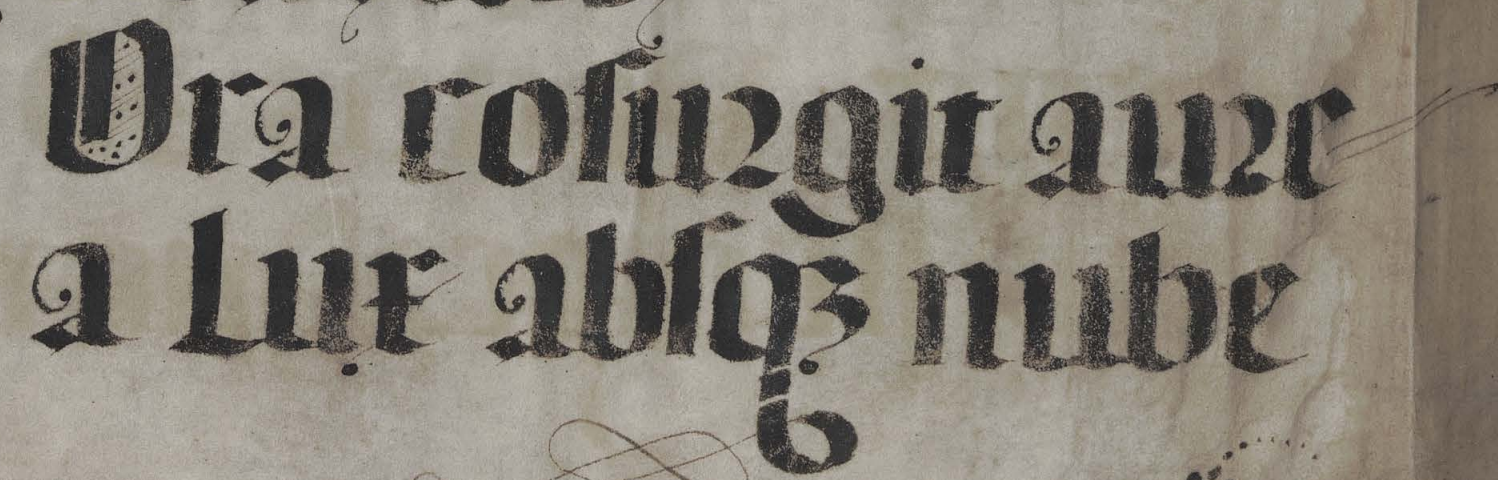 Ora cosurgit aure
a lux absqꝫ nube